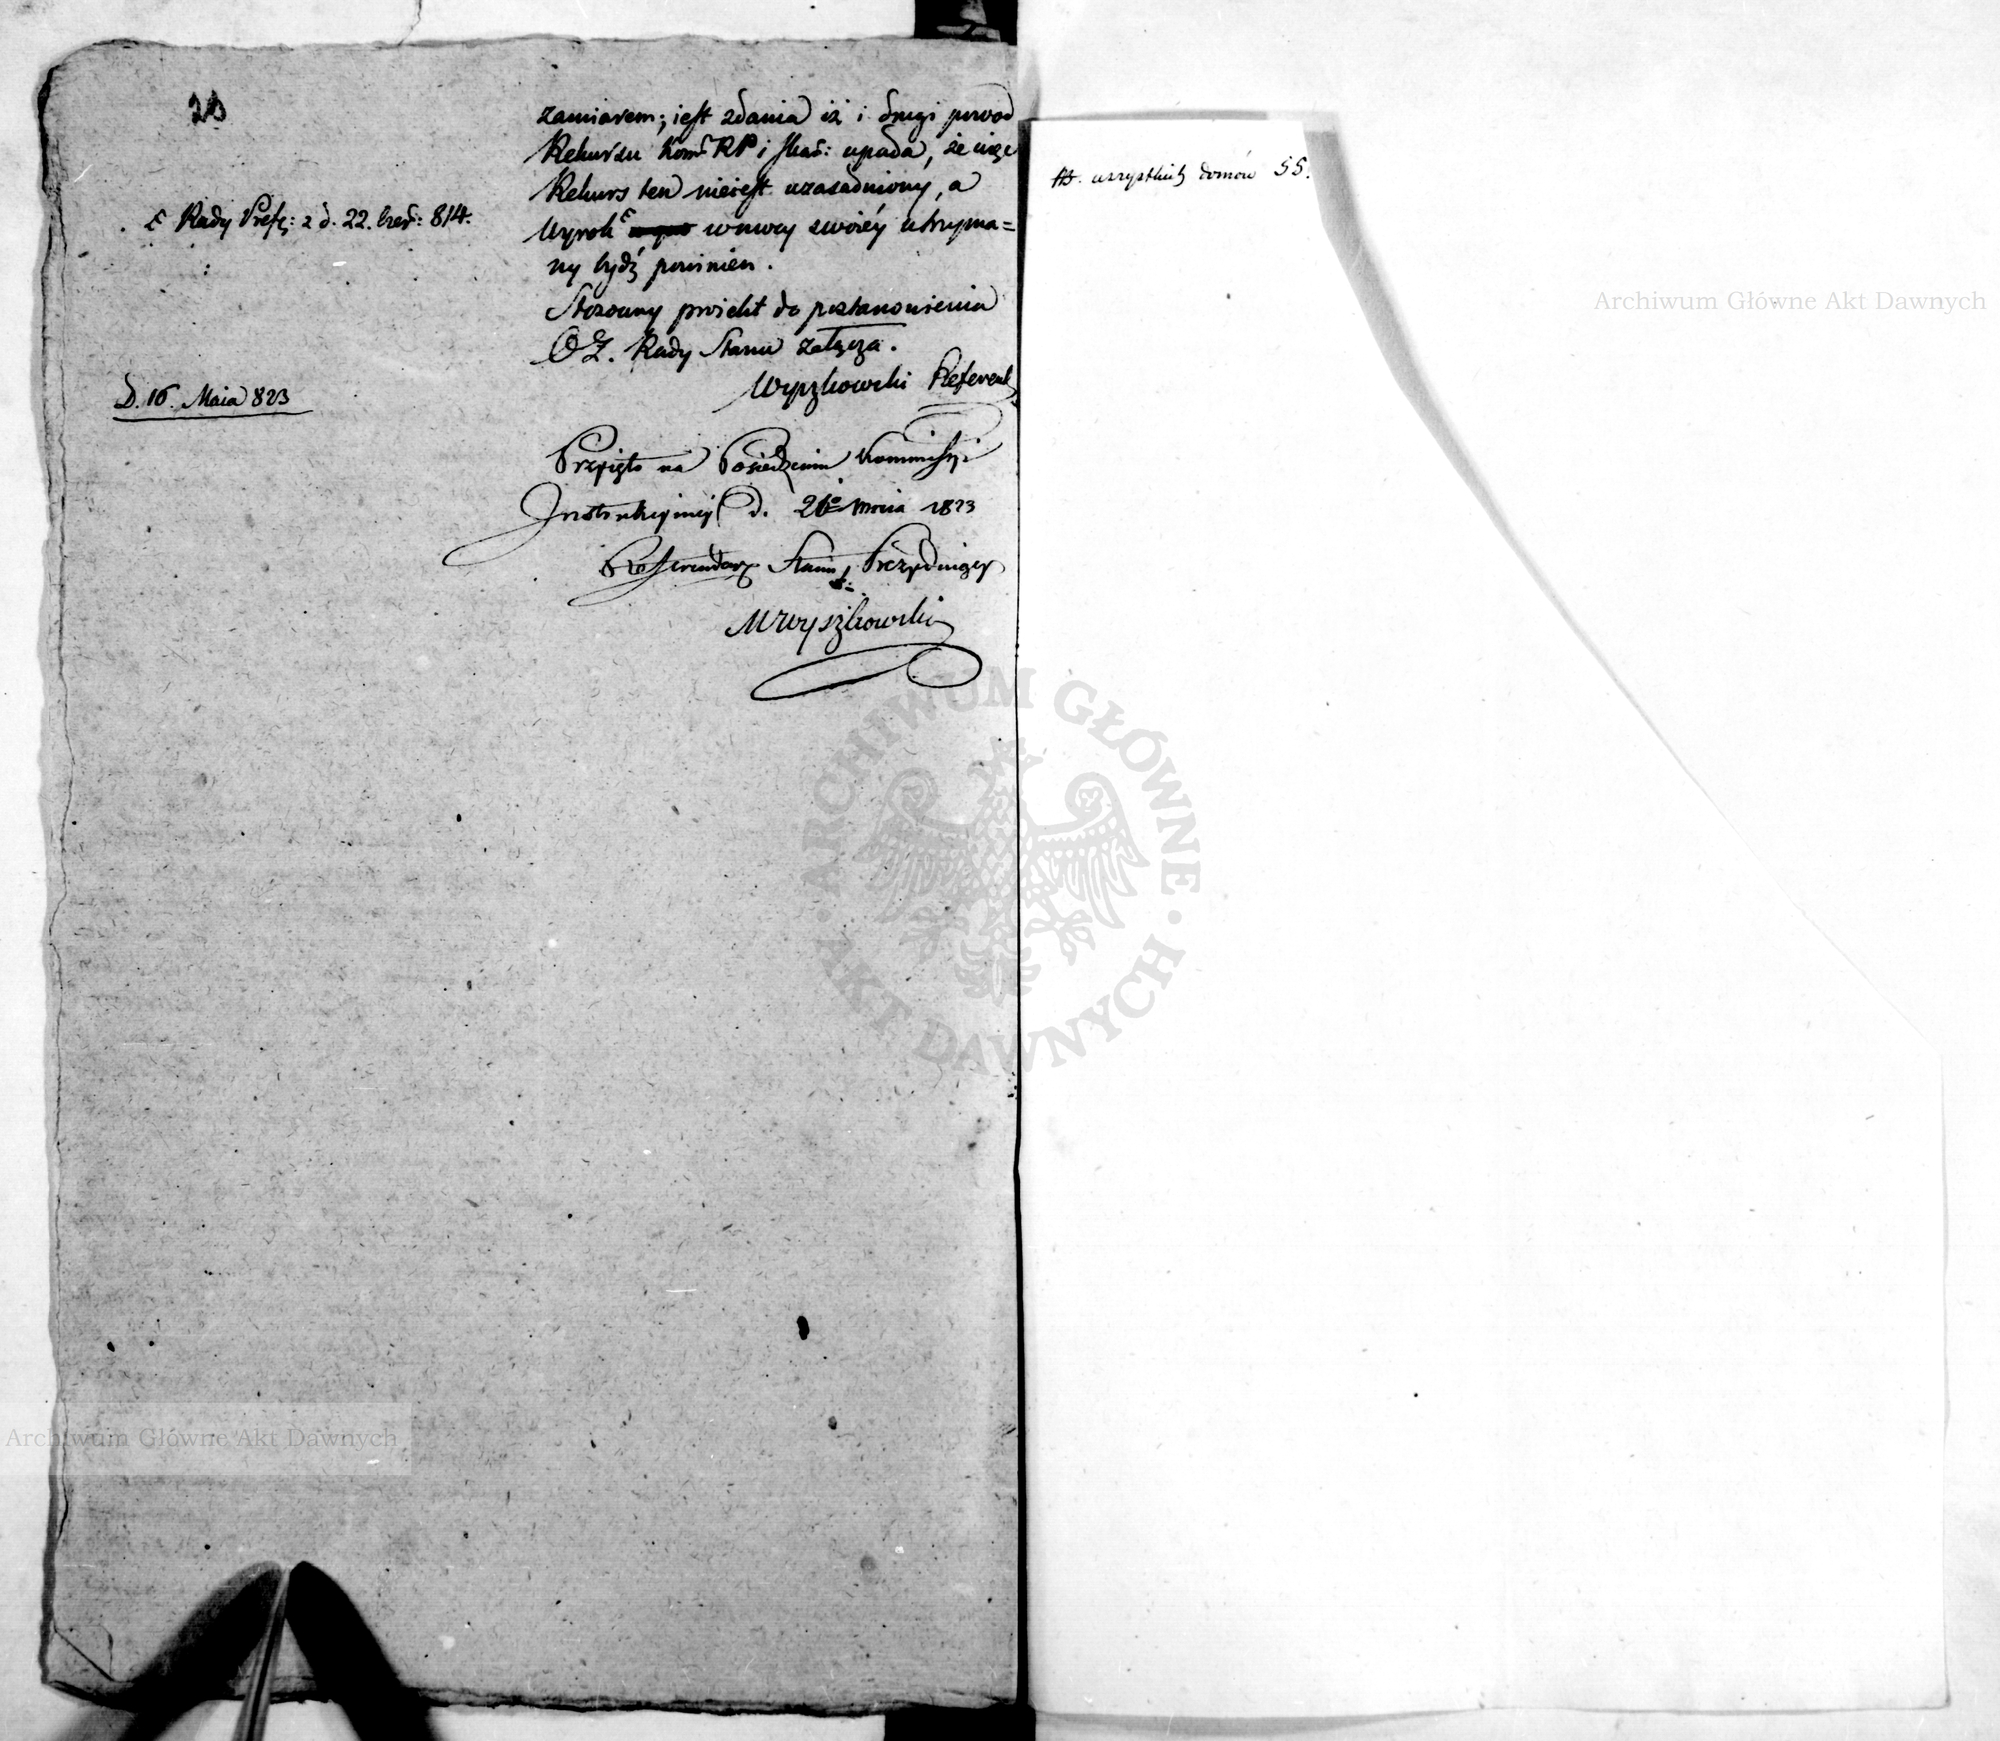 zamiarem; iest zdania iż i drugi powod
Rekursu Kom RP i Skar: upada, że więc
Rekurs ten nieiest uzasadniony, a
Wyrok w mocy swoiéy utrzyma=
ny bydź powinien.
Stosowny proiekt do postanowienia
OZ. Rady Stanu załącza.
Wyszkowski Referent
Rady Prefe: z d. 22. 814.
D. 16. Maia 823
Przyięto na Posiedzeniu Kommissyi
Instrukcyinéy d. maia 1823
Referendarz Stanu Prezyduiący
Wyszkowski
wszystkich domów 55.
Archiwum Główne Akt Dawnych
ARCHIWUM GŁÓWNE
AKT DAWNYCH
Archiwum Główne Akt Dawnych